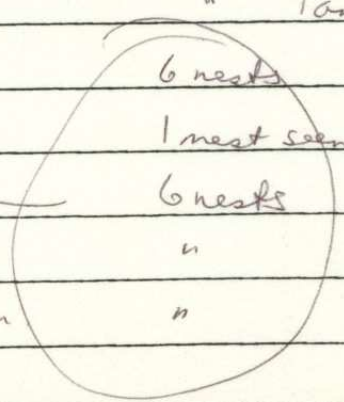 "
6 nests
1 nest seen
6 nests
"
"